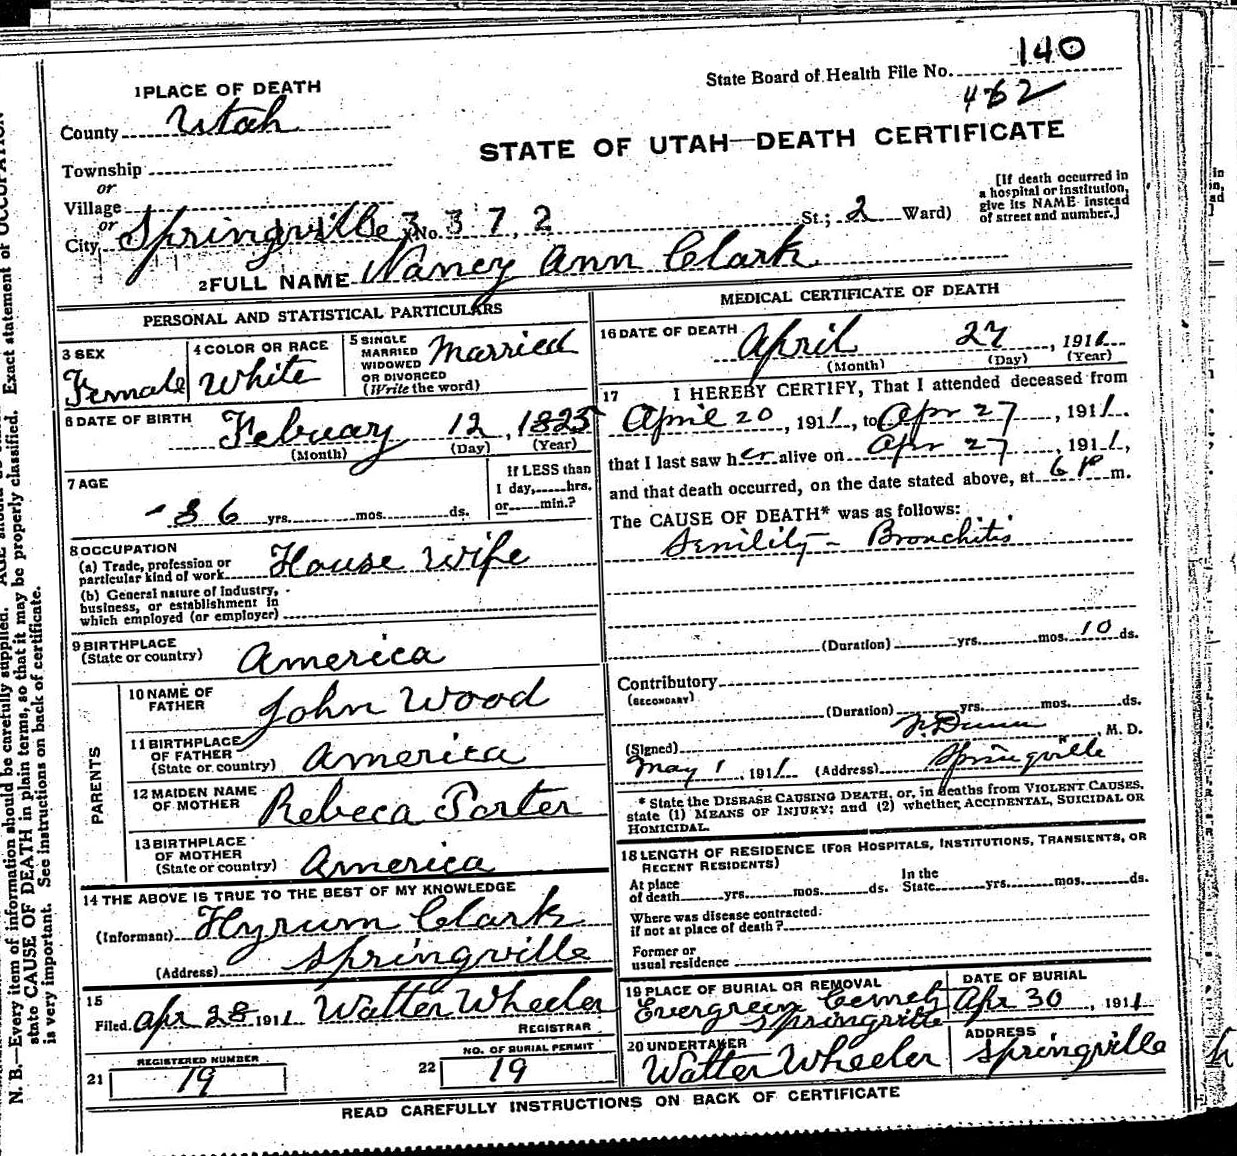 140
State Board of Health File No.
462
1 PLACE OF DEATH
County Utah
STATE OF UTAH—DEATH CERTIFICATE
Township
or
Village
or
City Springville No. 3 3 7, 2 St.; 2 Ward)
[If death occurred in
a hospital or institution,
give its NAME instead
of street and number.]
2 FULL NAME Nancy Ann Clark
PERSONAL AND STATISTICAL PARTICULARS
3 SEX
Female
4 COLOR OR RACE
White
5 SINGLE
MARRIED
WIDOWED
OR DIVORCED
(Write the word)
Married
6 DATE OF BIRTH
Febuary 12, 1825
(Month) (Day) (Year)
7 AGE
86 yrs. mos. ds.
If LESS than
1 day, hrs.
or min.?
8 OCCUPATION
(a) Trade, profession or
particular kind of work House Wife
(b) General nature of industry,
business, or establishment in
which employed (or employer)
9 BIRTHPLACE
(State or country) America
PARENTS
10 NAME OF
FATHER John Wood
11 BIRTHPLACE
OF FATHER
(State or country) America
12 MAIDEN NAME
OF MOTHER Rebeca Porter
13 BIRTHPLACE
OF MOTHER
(State or country) America
14 THE ABOVE IS TRUE TO THE BEST OF MY KNOWLEDGE
(Informant) Hyrum Clark
(Address) Springville
15
Filed Apr 28 1911 Walter Wheeler
REGISTRAR
REGISTERED NUMBER
21 19
NO. OF BURIAL PERMIT
22 19
MEDICAL CERTIFICATE OF DEATH
16 DATE OF DEATH
April 27, 1911
(Month) (Day) (Year)
17 I HEREBY CERTIFY, That I attended deceased from
April 20, 1911, to Apr 27, 1911.
that I last saw her alive on Apr 27, 1911,
and that death occurred, on the date stated above, at 6 P m.
The CAUSE OF DEATH* was as follows:
Senility - Bronchitis
(Duration) yrs. mos. 10 ds.
Contributory
(SECONDARY)
(Duration) yrs. mos. ds.
(Signed) Dunn, M. D.
May 1, 1911 (Address) Springville
* State the DISEASE CAUSING DEATH, or, in deaths from VIOLENT CAUSES,
state (1) MEANS OF INJURY; and (2) whether ACCIDENTAL, SUICIDAL OR
HOMICIDAL.
18 LENGTH OF RESIDENCE (FOR HOSPITALS, INSTITUTIONS, TRANSIENTS, OR
RECENT RESIDENTS)
At place
of death yrs. mos. ds.
In the
State yrs. mos. ds.
Where was disease contracted,
if not at place of death?
Former or
usual residence
19 PLACE OF BURIAL OR REMOVAL
Evergreen Cemety
Springville
DATE OF BURIAL
Apr 30, 1911
20 UNDERTAKER
Walter Wheeler
ADDRESS
Springville
READ CAREFULLY INSTRUCTIONS ON BACK OF CERTIFICATE
N. B.—Every item of information should be carefully supplied.
state CAUSE OF DEATH in plain terms, so that it may be properly classified. Exact statement of OCCUPATION
is very important. See instructions on back of certificate.